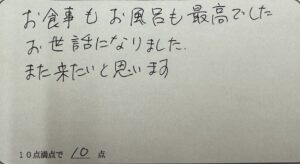 お食事も お風呂も最高でした
お世話になりました.
また来たいと思います
10点満点で 10 点